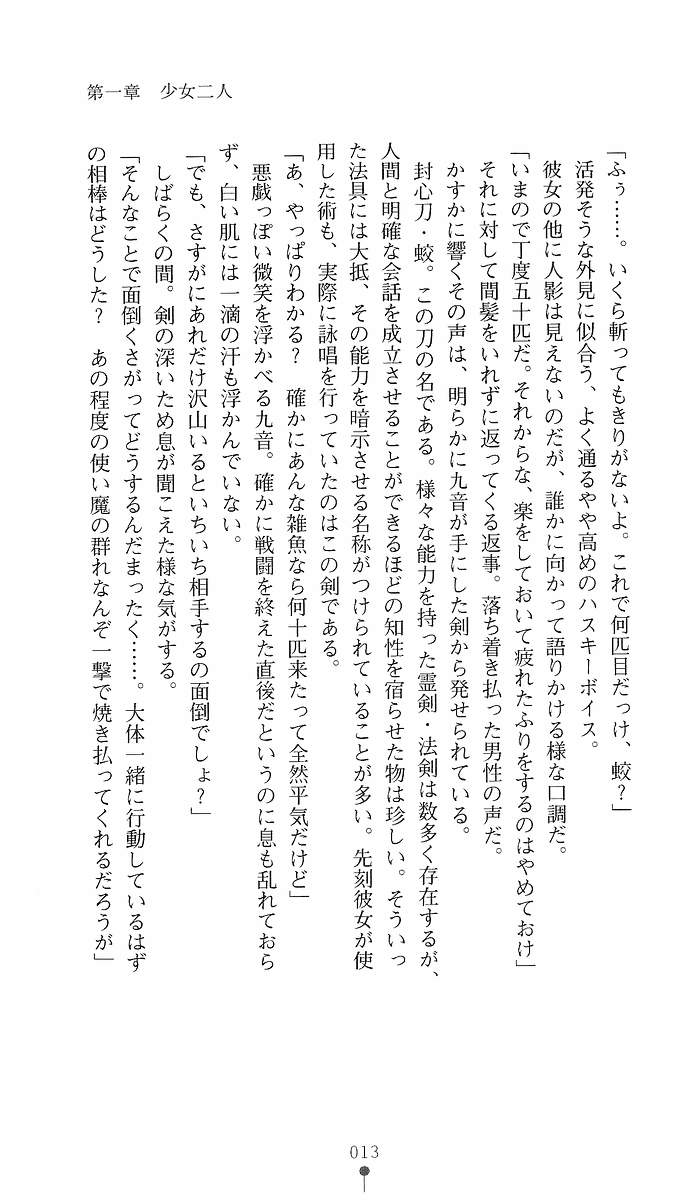 第一章　少女二人
「ふぅ……。いくら斬ってもきりがないよ。これで何匹目だっけ、蛟？」
活発そうな外見に似合う、よく通るやや高めのハスキーボイス。
彼女の他に人影は見えないのだが、誰かに向かって語りかける様な口調だ。
「いまので丁度五十匹だ。それからな、楽をしておいて疲れたふりをするのはやめておけ」
それに対して間髪をいれずに返ってくる返事。落ち着き払った男性の声だ。
かすかに響くその声は、明らかに九音が手にした剣から発せられている。
封心刀・蛟。この刀の名である。様々な能力を持った霊剣・法剣は数多く存在するが、
人間と明確な会話を成立させることができるほどの知性を宿らせた物は珍しい。そういっ
た法具には大抵、その能力を暗示させる名称がつけられていることが多い。先刻彼女が使
用した術も、実際に詠唱を行っていたのはこの剣である。
「あ、やっぱりわかる？　確かにあんな雑魚なら何十匹来たって全然平気だけど」
悪戯っぽい微笑を浮かべる九音。確かに戦闘を終えた直後だというのに息も乱れておら
ず、白い肌には一滴の汗も浮かんでいない。
「でも、さすがにあれだけ沢山いるといちいち相手するの面倒でしょ？」
しばらくの間。剣の深いため息が聞こえた様な気がする。
「そんなことで面倒くさがってどうするんだまったく……。大体一緒に行動しているはず
の相棒はどうした？　あの程度の使い魔の群れなんぞ一撃で焼き払ってくれるだろうが」
013